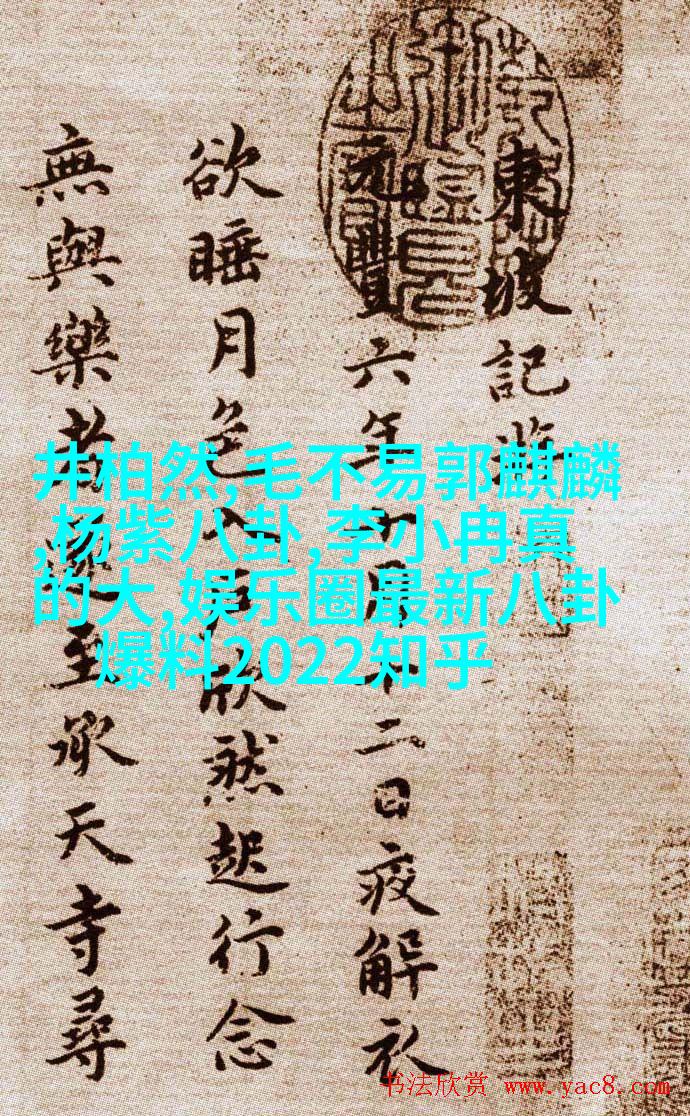 東坡記游
元豐六年十月十二日夜解衣
欲睡月色入户欣然起行念
無與樂者遂至承天寺尋
井柏然,毛不易郭麒麟
,杨紫八卦,李小冉真
的大,娱乐圈最新八卦
爆料2022知乎
书法欣赏 www.yac8.com